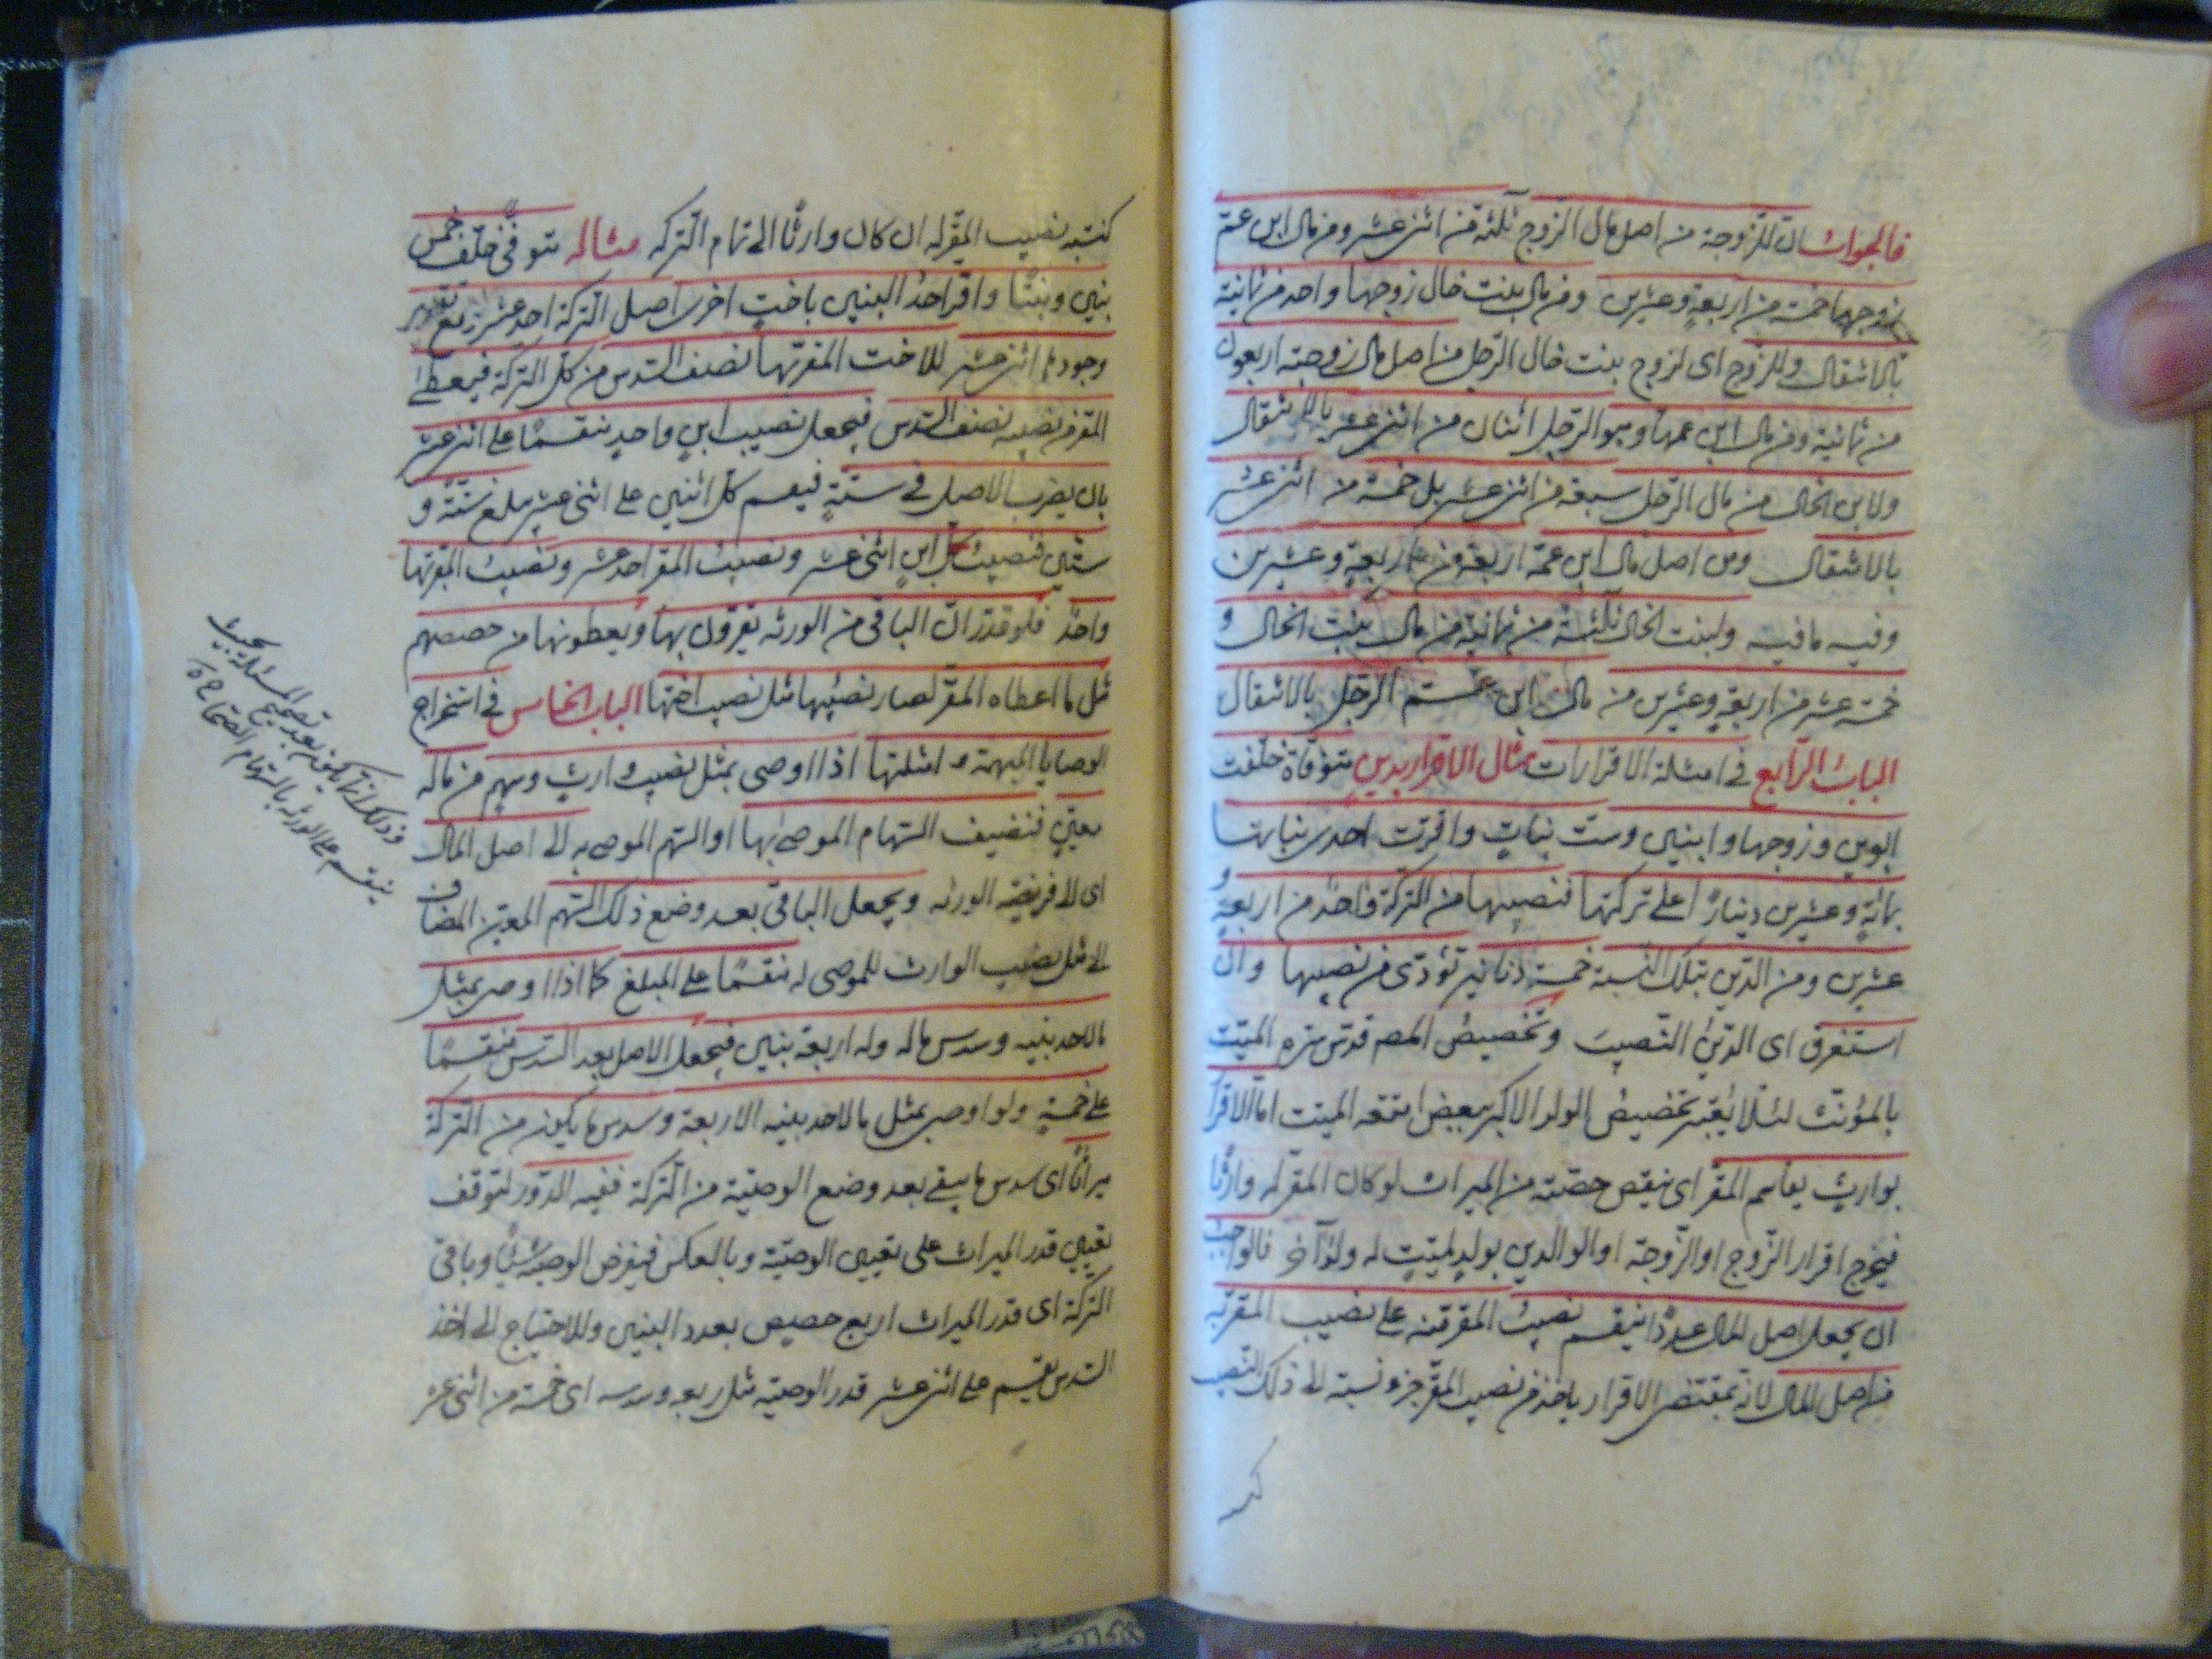 فالجواب انّ للزّوجة من اصل مال الزّوج ثلثة من اثنى عشر ومن مال ابن عمّ
زوجها خمسة من اربعةٍ وعشرين ومن مال بنت خال زوجها واحد من ثمانية
بالانتقال وللزّوج اى لزوج بنت خال الرّجل من اصل مال زوجته اربعون
من ثمانية ومن مال ابن عمها وهو الرّجل اثنان من اثنى عشر بالانتقال
ولابن الخال من مال الرّجل سبعة من اثنى عشر بل خمسة من اثنى عشر
بالانتقال ومن اصل مال ابن عمّه اربعة من اربعةٍ وعشرين
وفيه ما فيه ولبنت الخال ثلثة من ثمانية من مال بنت الخال و
خمسة عشر من اربعةٍ وعشرين من مال ابن عمّ الرّجل بالانتقال
الباب الرّابع فى امثلة الاقرارات مثال الاقرار بدين متوفّاة خلّفت
ابوين وزوجها وابنين وستّ بناتٍ واقرّت احدى بناتها
بمائةٍ وعشرين دينارًا على تركتها فنصيبها من التركة واحد من اربعةٍ و
عشرين ومن الدّين بتلك النّسبة خمسة دنانير تؤدّى من نصيبها وان
استغرق اى الدّينُ النّصيبَ وتخصيصُ المصـ قدّس سرّه الميّت
بالمؤنّث لئلّا يعتبر تخصيصُ الولد الاكبر ببعض امتعة الميت امّا الاقرار
بوارثٍ يقاسم المقرّ اى ينقص حصّته من الميراث لو كان المقرّ له وارثًا
فيخرج اقرار الزّوج او الزّوجة او الوالدين بولدٍ لميّتٍ له ولدٌ آخر فالواجب
ان يجعل اصل المال عددًا ينقسم نصيبُ المقرّ منه على نصيب المقرّ به
من اصل المال لانّه بمقتضى الاقرار ياخذ من نصيب المقرّ جزء نسبته الى ذلك النّصيب
كنسبة نصيب المقرّ له ان كان وارثًا الى تمام التّركة مثاله متوفّى خلّف خمس
بنين وبنتًا واقرّ احدُ البنين باختٍ اخرى اصل التركة احد عشر ومع تقدير
وجودها اثنى عشر للاخت المقرّ بها نصف السّدس من كلّ التركة فيعطى
المقرّ من نصيبه نصف السّدس فيجعل نصيب ابنٍ واحدٍ منقسمًا على اثنى عشر
بان يضرب الاصل فى ستّةٍ فيعم كلّ اثنين على اثنى عشر يبلغ ستّة و
ستّين فنصيبُ كلّ ابنٍ اثنى عشر ونصيبُ المقرّ احد عشر ونصيبُ المقرّ بها
واحدٌ فلو قدّر انّ الباقى من الورثة يقرّون بها ويعطونها من حصصهم
مثل ما اعطاه المقرّ لصار نصيبها مثل نصيب اختها الباب الخامس فى استخراج
الوصايا المبهمة وامثلتها اذا اوصى بمثل نصيب وارثٍ وسهمٍ من ماله
معيّنٍ فنضيف السّهام الموصى بها او السّهم الموصى به الى اصل المال
اى الى فريضة الورثه ويجعل الباقى بعد وضع ذلك السّهم المعيّن المضاف
الى مثل نصيب الوارث للموصى له منقسمًا على المبلغ كما اذا اوصى بمثل
ما لاحد بنيه وسدس ماله وله اربعة بنين فيجعل الاصل بعد السّدس منقسمًا
على خمسةٍ ولو اوصى بمثل ما لاحد بنيه الاربعة وسدس ما يكون من التّركة
ميراثًا اى سدس ما يبقى بعد وضع الوصيّة من التّركة ففيه الدّور لتوقّف
تعيين قدر الميراث على تعيين الوصيّة وبالعكس فيفرض الوصيّة شيئًا وباقى
التركة اى قدر الميراث اربع حصص بعدد البنين وللاحتياج الى اخذ
السّدس يقسم على اثنى عشر قدر الوصيّة مثل ربعه وسدسه اى خمسة من اثنى عشر
وذلك انّما يكون بعد تصحيح المسئلة بحيث
ينقسم على الورثه بالسّهام الصّحاح